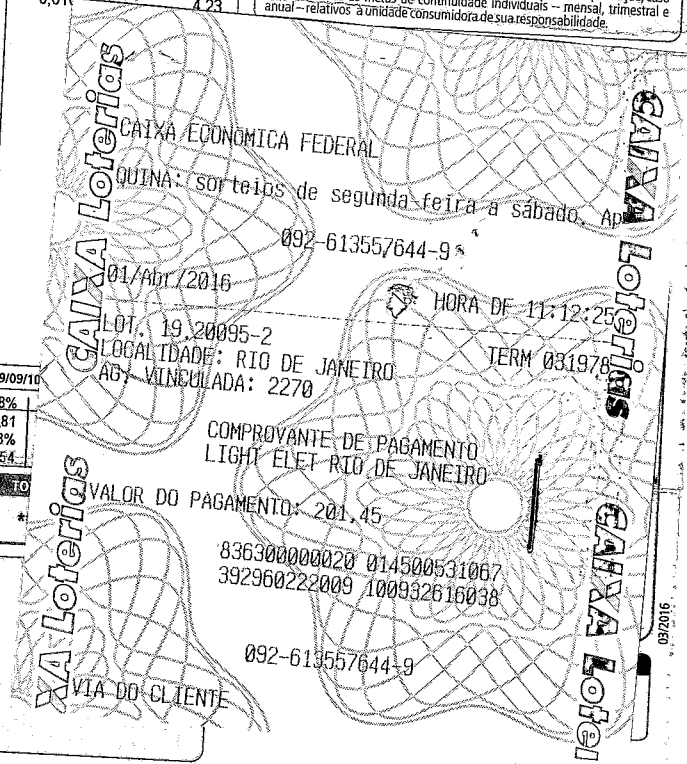 4,23
metas de continuidade individuais – mensal, trimestral e
anual – relativos à unidade consumidora de sua responsabilidade.
CAIXA Loterias
CAIXA Loterias
CAIXA ECONOMICA FEDERAL
QUINA: sorteios de segunda-feira a sábado. Ap
092-613557644-9
01/Abr/2016
HORA DF 11:12:25
LOT. 19.20095-2
TERM 031978
LOCALIDADE: RIO DE JANEIRO
AG. VINCULADA: 2270
9/09/10
8%
81
8%
54
TO
*
COMPROVANTE DE PAGAMENTO
LIGHT ELET RIO DE JANEIRO
VALOR DO PAGAMENTO: 201,45
836300000020 014500531067
392960222009 100932616038
092-613557644-9
VIA DO CLIENTE
XA Loterias
CAIXA Lote
03/2016